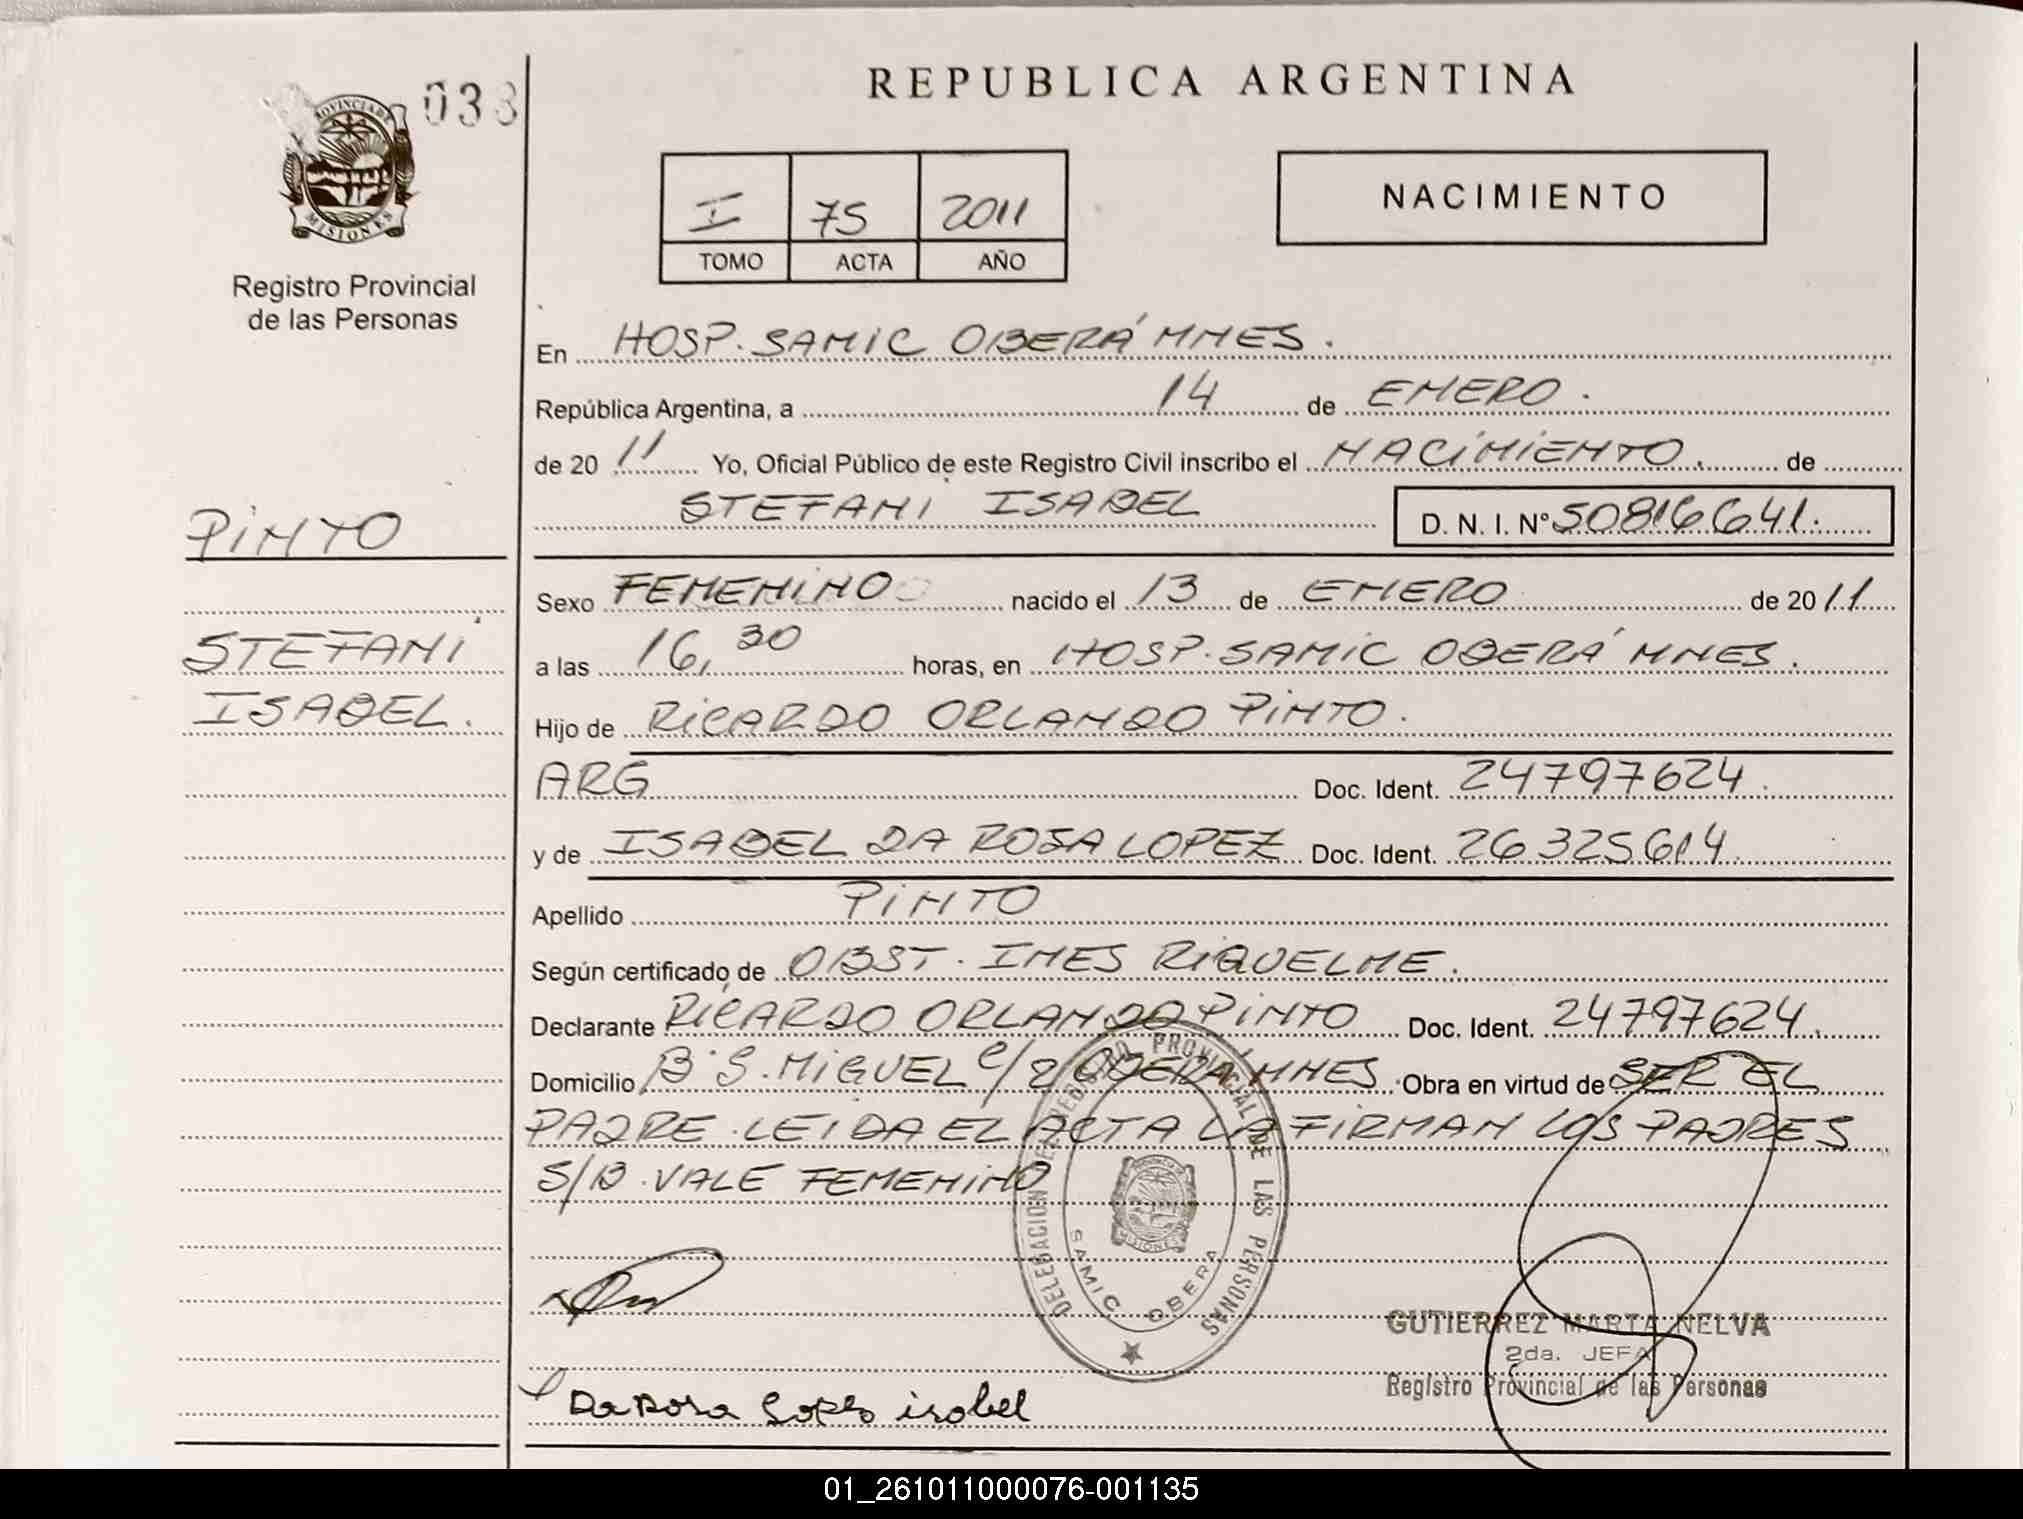 033
REPUBLICA ARGENTINA
PROVINCIA DE
MISIONES
Registro Provincial
de las Personas
I 75 2011
TOMO ACTA AÑO
NACIMIENTO
En HOSP. SAMIC OBERÁ MNES.
República Argentina, a 14 de ENERO.
de 20 11 Yo, Oficial Público de este Registro Civil inscribo el NACIMIENTO. de
STEFANI ISABEL D. N. I. N° 50816641.
PINTO
Sexo FEMENINO nacido el 13 de ENERO de 2011
STEFANI
ISABEL.
a las 16,30 horas, en HOSP. SAMIC OBERÁ MNES.
Hijo de RICARDO ORLANDO PINTO.
ARG Doc. Ident. 24797624.
y de ISABEL DA ROSA LOPEZ Doc. Ident. 26325614.
Apellido PINTO
Según certificado de OBST. INES RIQUELME.
Declarante RICARDO ORLANDO PINTO Doc. Ident. 24797624.
Domicilio B° S. MIGUEL C/2 OBERÁ MNES. Obra en virtud de SER EL
PADRE. LEIDA EL ACTA LA FIRMAN LOS PADRES
S/B. VALE FEMENINO
DELEGACION DEL REGISTRO PROVINCIAL DE LAS PERSONAS
MISIONES
SAMIC OBERA
GUTIERREZ MARTA NELVA
2da. JEFA
Registro Provincial de las Personas
Da Rosa Lopes isabel
01_261011000076-001135